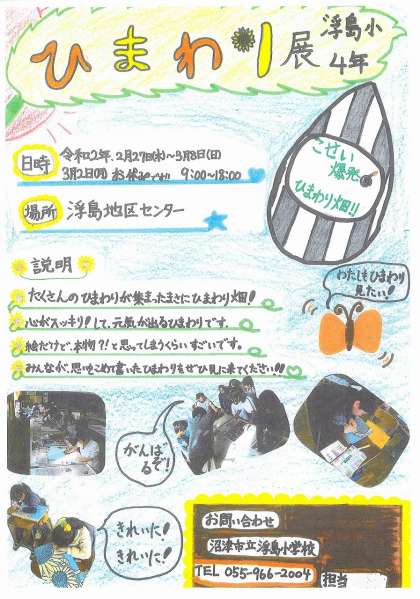 ひまわり展 浮島小4年
日時 令和2年.2月27日(木)〜3月8日(日)
3月2日(月)お休みです!! 9:00〜18:00
場所 浮島地区センター
こせい
爆発
ひまわり畑!!
説明
たくさんのひまわりが集まったまさにひまわり畑!
心がスッキリ!して、元気が出るひまわりです。
絵だけど、本物?!と思ってしまうくらいすごいです。
みんなが、思いをこめて書いたひまわりをぜひ見に来てください!!
わたしもひまわり
見たい!
がんば
るぞ!
きれいに!
きれいに!
お問い合わせ
沼津市立浮島小学校
TEL 055-966-2004
担当